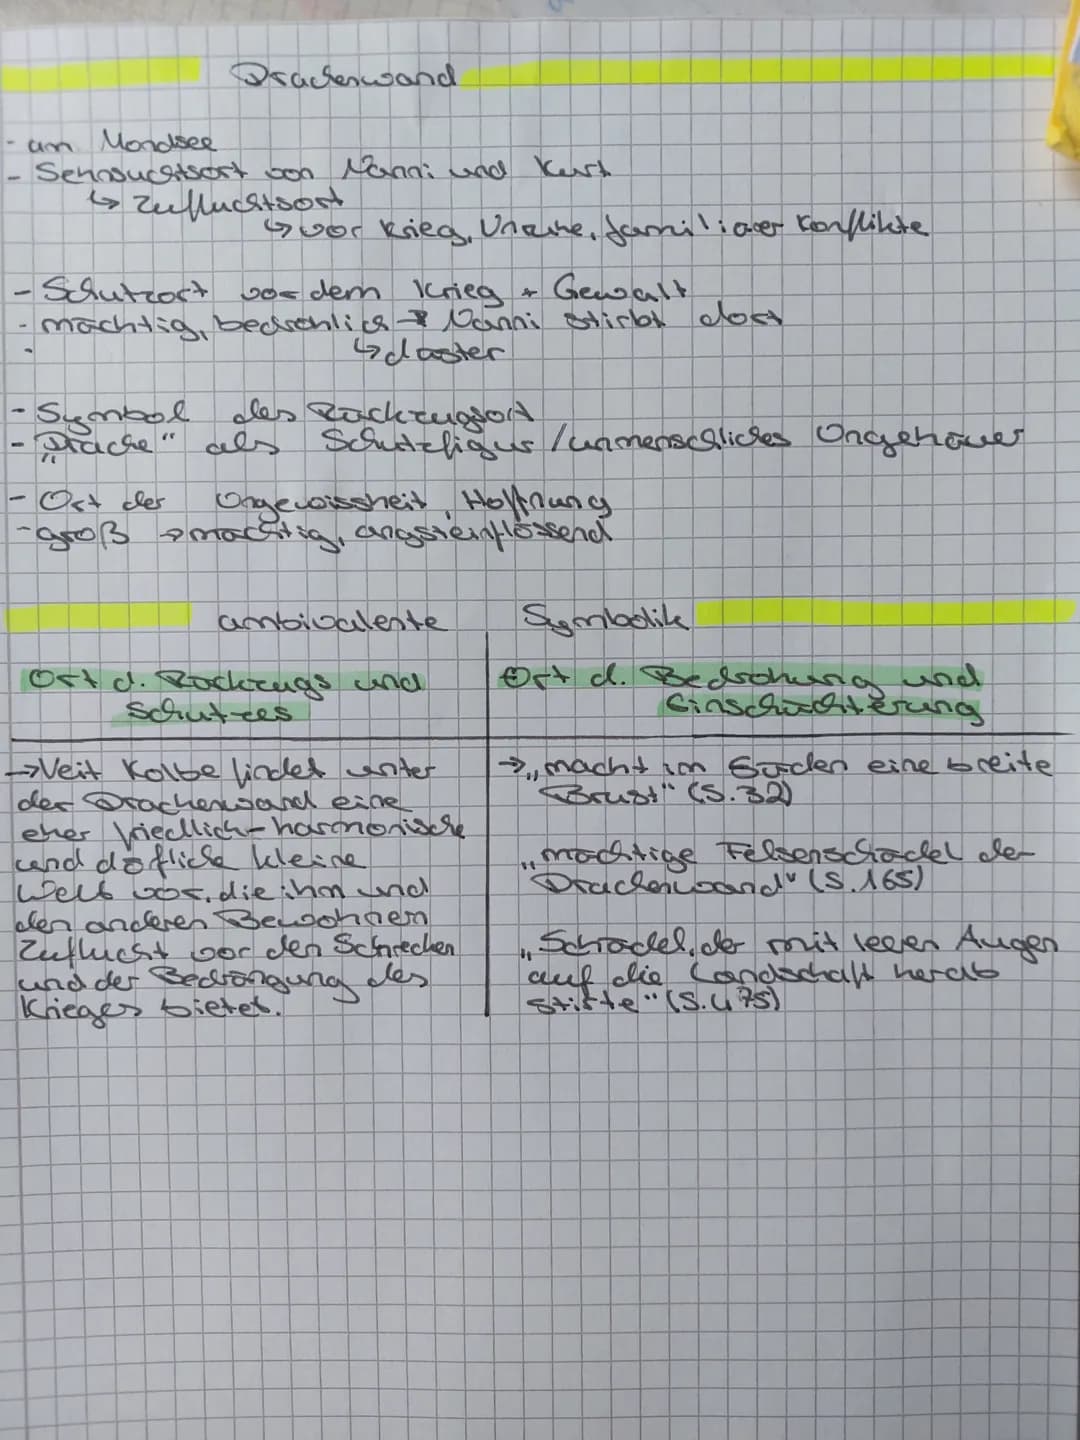 Drachenwand
- am Mondsee
- Sehnsuchtsort von Nanni und Kurt
↳ Zufluchtsort
↳ vor Krieg, Unruhe, familiäer Konflikte
- Schutzort vor dem Krieg + Gewalt
- mächtig, bedrohlich → Nanni stirbt dort
↳ düster
- Symbol des Rückzugsort
- "Drache" als Schutzfigur / unmenschliches Ungeheuer
- Ort der Ungewissheit, Hoffnung
- groß → mächtig, angsteinflössend
ambivalente Symbolik
Ort d. Rückzugs und Schutzes
→ Veit Kolbe findet unter
der Drachenwand eine
eher friedlich-harmonische
und döfliche kleine
Welt vor, die ihm und
den anderen Bewohnern
Zuflucht vor den Schrecken
und der Bedrängung des
Krieges bietet.
Ort d. Bedrohung und
Einschüchterung
→ „macht im Süden eine breite
Brust" (S. 32)
„mächtige Felsenschädel der
Drachenwand" (S. 165)
„Schädel, der mit leeren Augen
auf die Landschaft herab
stierte" (S. 475)